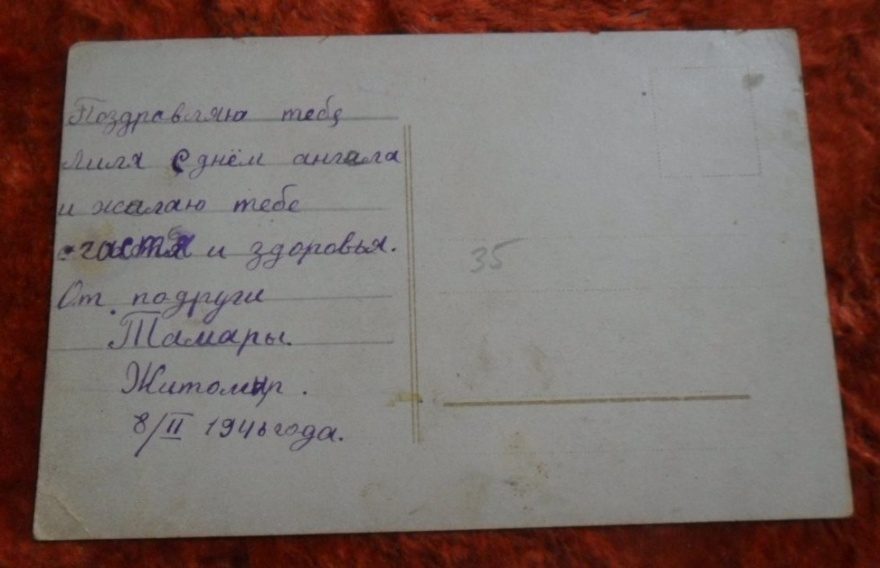 Поздравляю тебе
Лиля с днём ангала
и жалаю тебе
счастья и здоровья.
От подруги
Тамары.
Житомир.
8/II 1946 года.
35